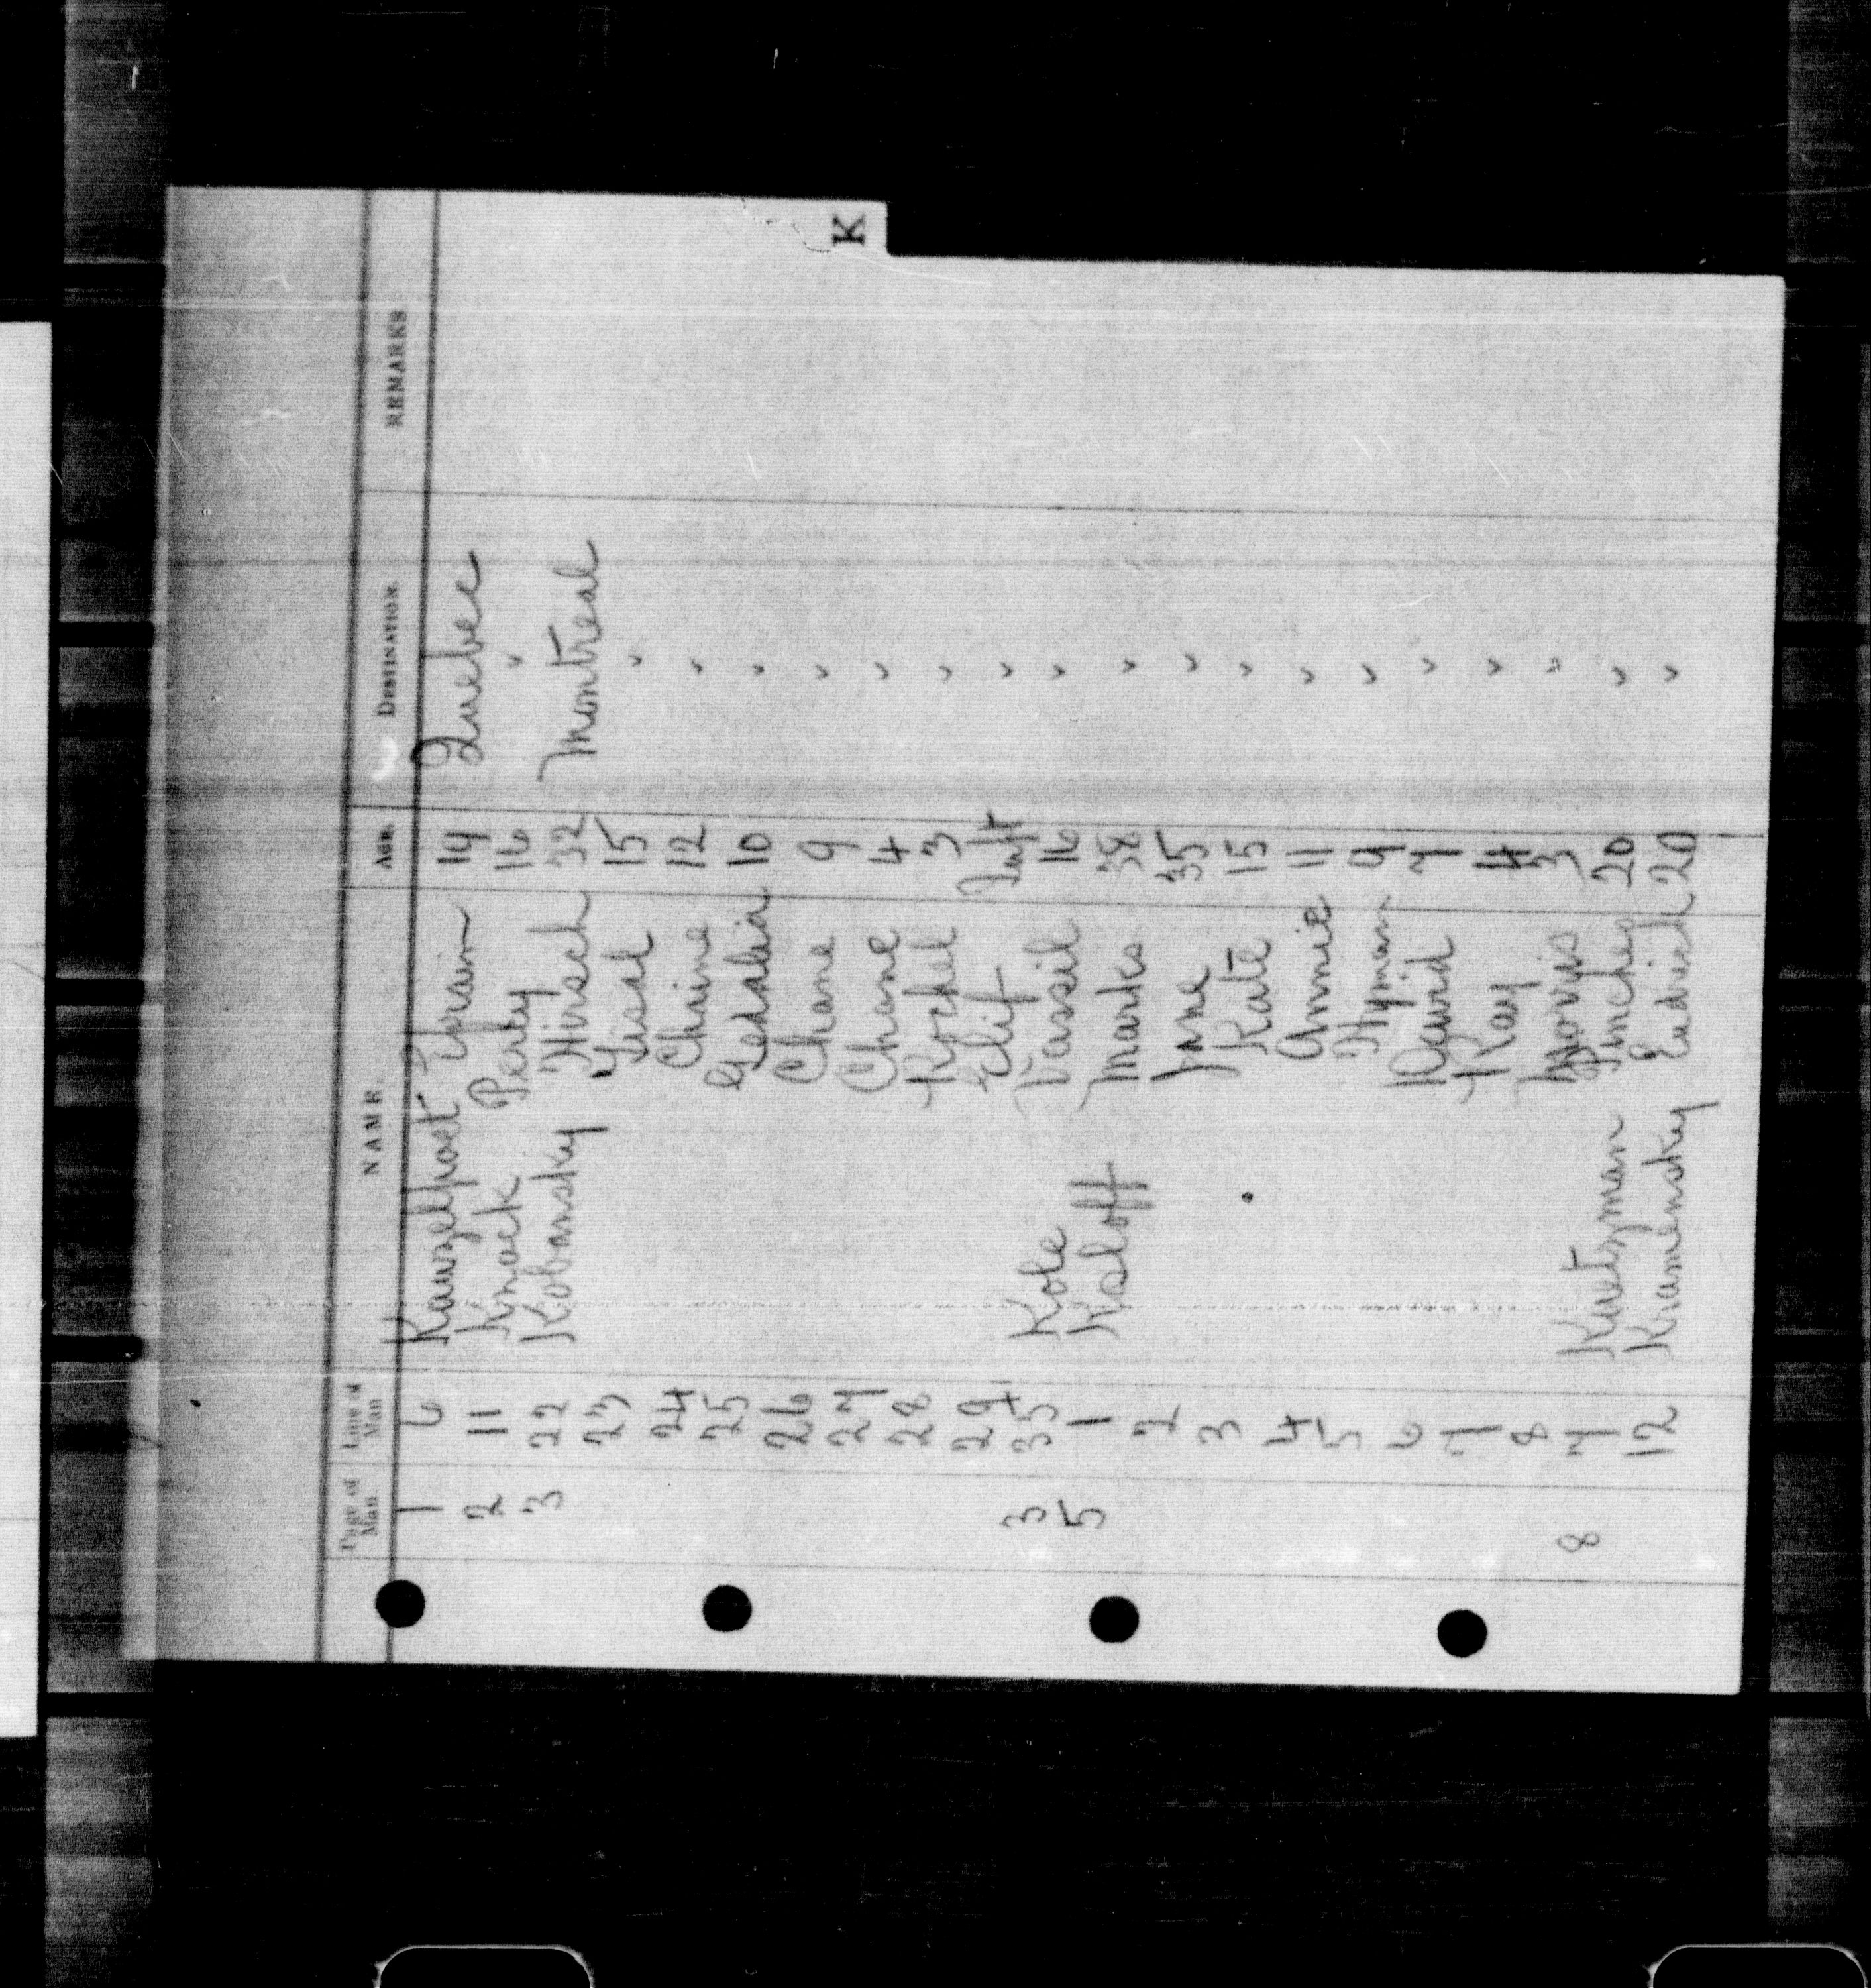 K
Page of Man. Line of Man NAME. AGE. DESTINATION. REMARKS
1 6 19 Quebec
2 11 Knack Perly 16 "
3 22 Kobansky Hirsch 32 Montreal
23 15 "
24 Chaine 12 "
25 Gedalia 10 "
26 Chane 9 "
27 Chane 4 "
28 Rochel 3 "
29 Inft "
3 35 Kole Vassil 16 "
5 1 Ksloff Marks 38 "
2 Jane 35 "
3 Kate 15 "
4 Annie 11 "
5 Hyman 9 "
6 David 7 "
7 Ray 4 "
8 Morris 3 "
8 7 Kurtzman Pinches 20 "
12 Kramensky 20 "